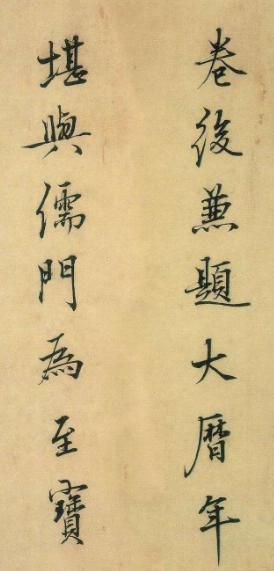 卷後兼題大曆年
堪與儒門為至寶